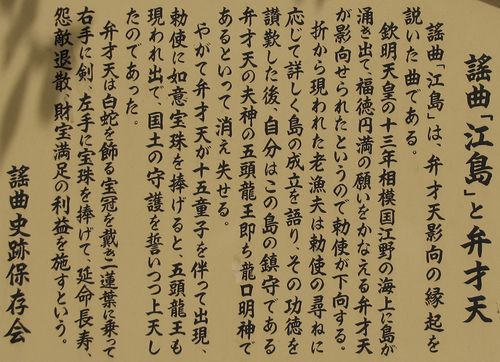 謡曲「江島」と弁才天
謡曲「江島」は、弁才天影向の縁起を
説いた曲である。
欽明天皇の十三年相模国江野の海上に島が
涌き出て、福徳円満の願いをかなえる弁才天
が影向せられたというので勅使が下向する。
折から現われた老漁夫は勅使の尋ねに
応じて詳しく島の成立を語り、その功徳を
讃歎した後、自分はこの島の鎮守である
弁才天の夫神の五頭龍王即ち龍口明神で
あるといって消え失せる。
やがて弁才天が十五童子を伴って出現、
勅使に如意宝珠を捧げると、五頭龍王も
現われ出で、国土の守護を誓いつつ上天し
たのであった。
弁才天は白蛇を飾る宝冠を戴き一蓮葉に乗って
右手に剣、左手に宝珠を捧げて、延命長寿、
怨敵退散、財宝満足の利益を施すという。
謡曲史跡保存会